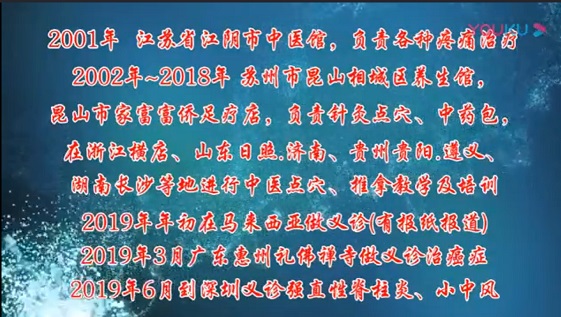 YOUKU
2001年 江苏省江阴市中医馆，负责各种疼痛治疗
2002年~2018年 苏州市昆山相城区养生馆，
昆山市家富富侨足疗店，负责针灸点穴、中药包，
在浙江横店、山东日照.济南、贵州贵阳.遵义、
湖南长沙等地进行中医点穴、推拿教学及培训
2019年年初在马来西亚做义诊(有报纸报道)
2019年3月广东惠州礼佛禅寺做义诊治癌症
2019年6月到深圳义诊强直性脊柱炎、小中风